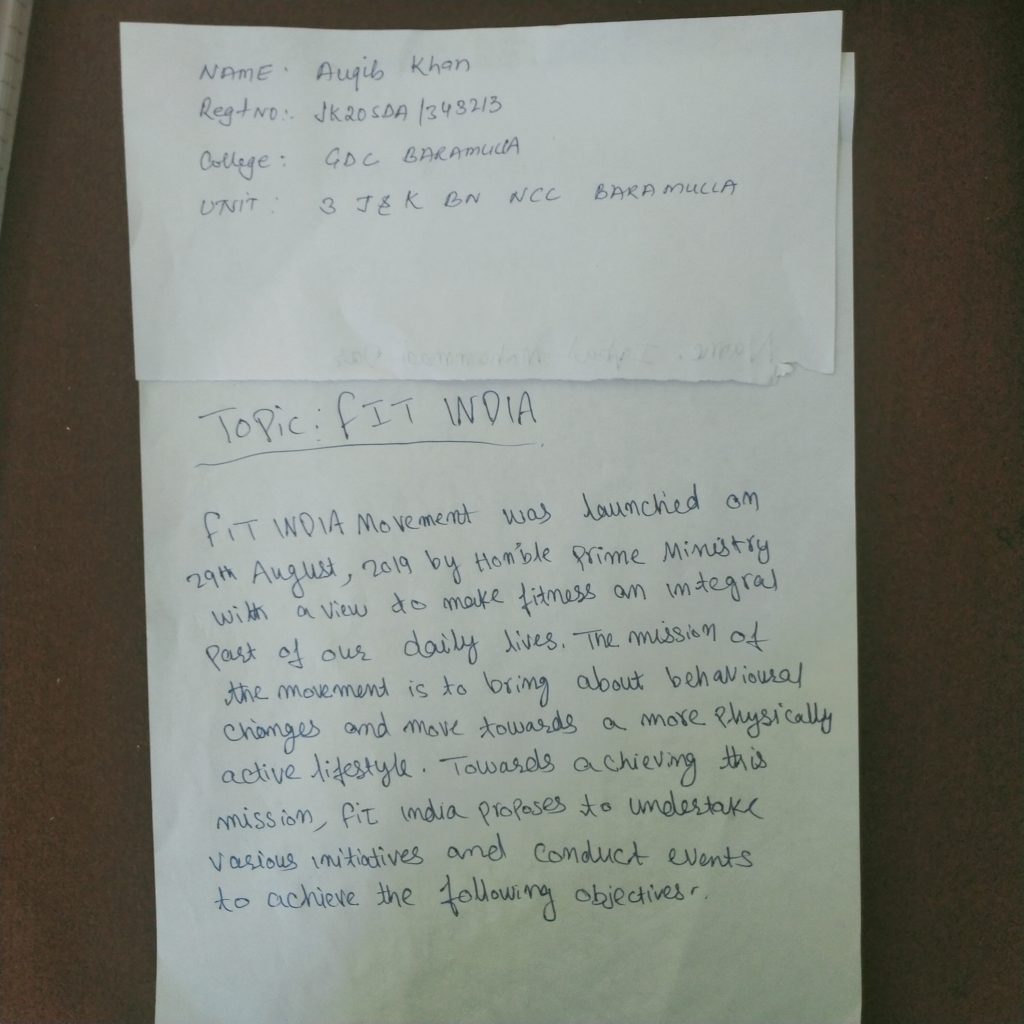 NAME: Auqib Khan
Regt NO:. JK20SDA/343213
College: GDC BARAMULLA
UNIT: 3 J&K BN NCC BARAMULLA
Topic: FIT INDIA
FIT INDIA Movement was launched on
29th August, 2019 by Hon'ble Prime Ministry
with a view to make fitness an integral
Part of our daily lives. The mission of
the movement is to bring about behavioural
changes and move towards a more Physically
active lifestyle. Towards achieving this
mission, Fit india proposes to undertake
various initiatives and conduct events
to achieve the following objectives:.